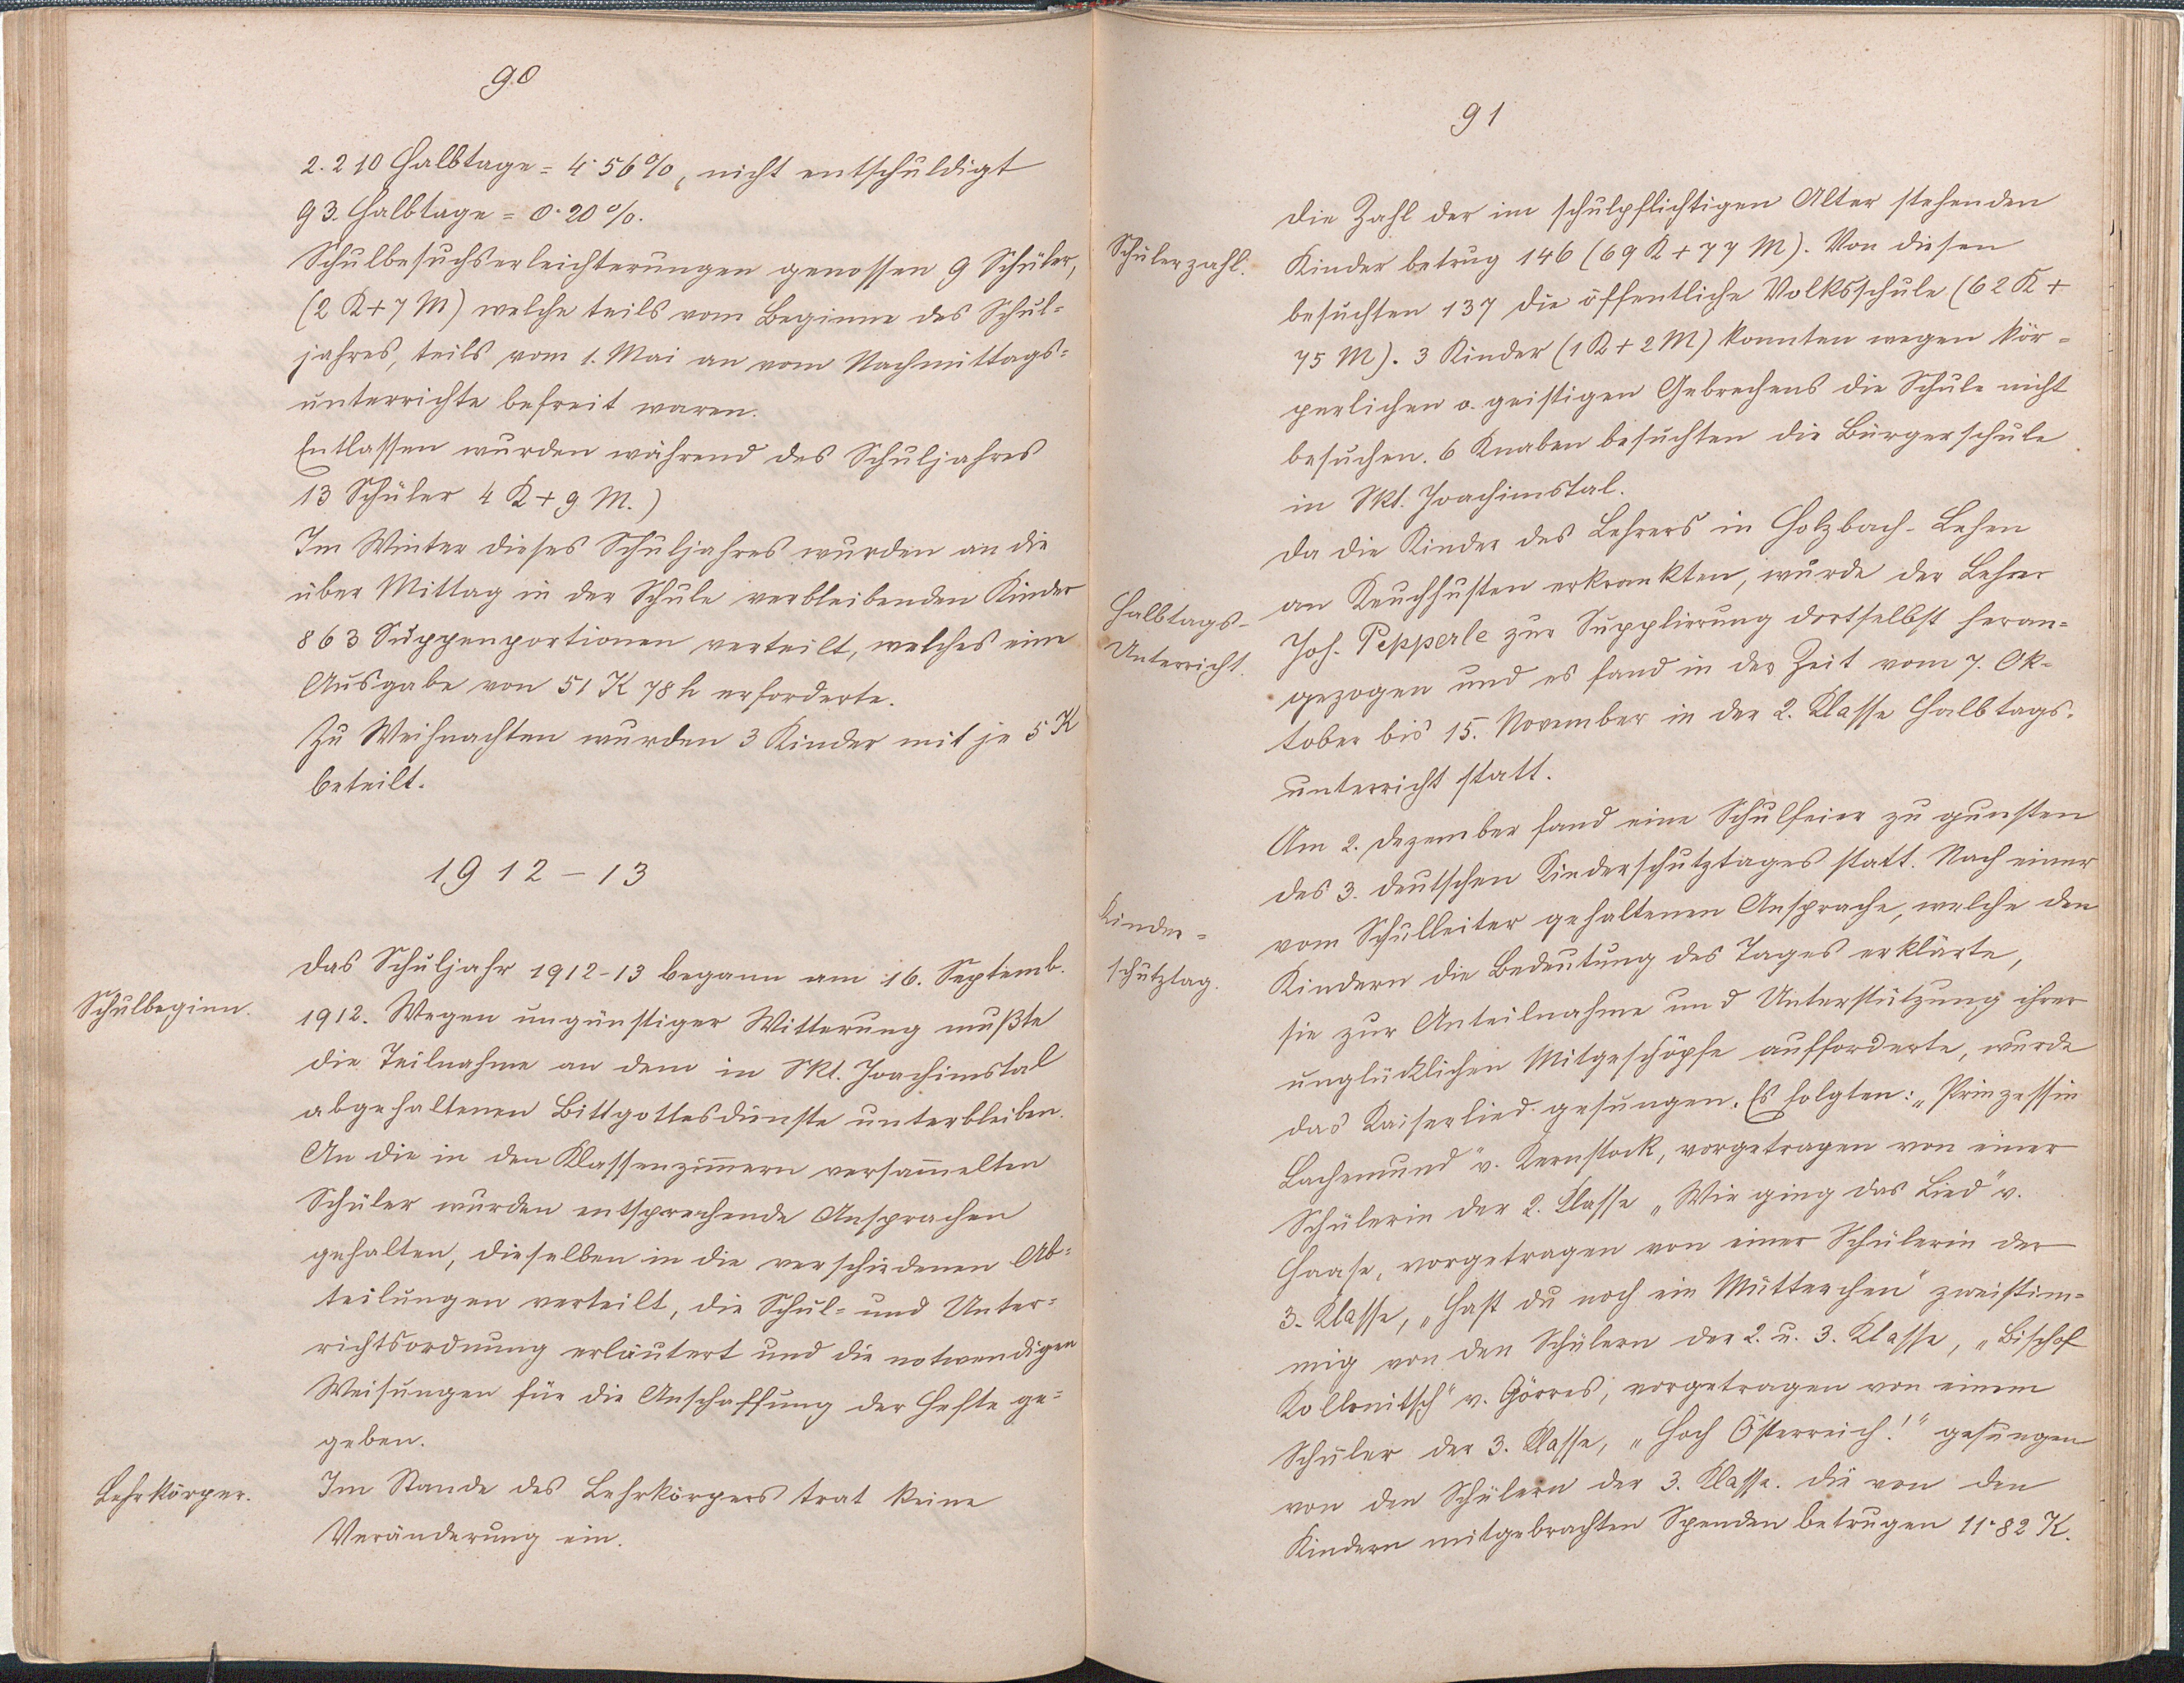 90
2.210 Halbtage = 4·56%, nicht entschuldigt
93. Halbtage = 0·20%.
Schulbesuchserleichterungen genossen 9 Schüler,
(2 K + 7 M) welche teils vom Beginne des Schul=
jahres, teils vom 1. Mai an vom Nachmittags=
unterrichte befreit waren.
Entlassen wurden während des Schuljahres
13 Schüler 4 K + 9 M.)
Im Winter dieses Schuljahres wurden an die
über Mittag in der Schule verbleibenden Kinder
863 Suppenportionen verteilt, welches eine
Ausgabe von 51 K 78 h erforderte.
Zu Weihnachten wurden 3 Kinder mit je 5 K
beteilt.
1912 – 13
Schulbeginn.
Das Schuljahr 1912-13 begann am 16. Septemb.
1912. Wegen ungünstiger Witterung mußte
die Teilnahme an dem in Skt. Joachimstal
abgehaltenen Bittgottesdienste unterbleiben.
An die in den Klassenzim̄ern versam̄elten
Schüler wurden entsprechende Ansprachen
gehalten, dieselben in die verschiedenen Ab=
teilungen verteilt, die Schul= und Unter=
richtsordnung erläutert und die notwendigen
Weisungen für die Anschaffung der Hefte ge=
geben.
Lehrkörper.
Im Stande des Lehrkörpers trat keine
Veränderung ein.
91
Schülerzahl.
Die Zahl der im schulpflichtigen Alter stehenden
Kinder betrug 146 (69 K + 77 M). Von diesen
besuchten 137 die öffentliche Volksschule (62 K +
75 M). 3 Kinder (1 K + 2 M) konnten wegen kör=
perlichen o. geistigen Gebrechens die Schule nicht
besuchen. 6 Knaben besuchten die Bürgerschule
in Skt. Joachimstal.
Halbtags-
Unterricht.
Da die Kinder des Lehrers in Holzbach-Lehen
an Keuchhusten erkrankten, wurde der Lehrer
Joh. Pepperle zur Supplierung dortselbst heran=
gezogen und es fand in der Zeit vom 7. Ok=
tober bis 15. November in der 2. Klasse Halbtags-
unterricht statt.
Kinder=
schutztag.
Am 2. Dezember fand eine Schulfeier zu gunsten
des 3. deutschen Kinderschutztages statt. Nach einer
vom Schulleiter gehaltenen Ansprache, welche den
Kindern die Bedeutung des Tages erklärte,
sie zur Anteilnahme und Unterstützung ihrer
unglücklichen Mitgeschöpfe aufforderte, wurde
das Kaiserlied gesungen. Es folgten: „Prinzessin
Lachemund" v. Kernstock, vorgetragen von einer
Schülerin der 2. Klasse „Wie ging das Lied" v.
Haase, vorgetragen von einer Schülerin der
3. Klasse, „Hast du noch ein Mütterchen" zweistim=
mig von den Schülern der 2. u. 3. Klasse, „Bischof
Kollonitsch" v. Görres, vorgetragen von einem
Schüler der 3. Klasse, „Hoch Österreich!" gesungen
von den Schülern der 3. Klasse. Die von den
Kindern mitgebrachten Spenden betrugen 11·82 K.